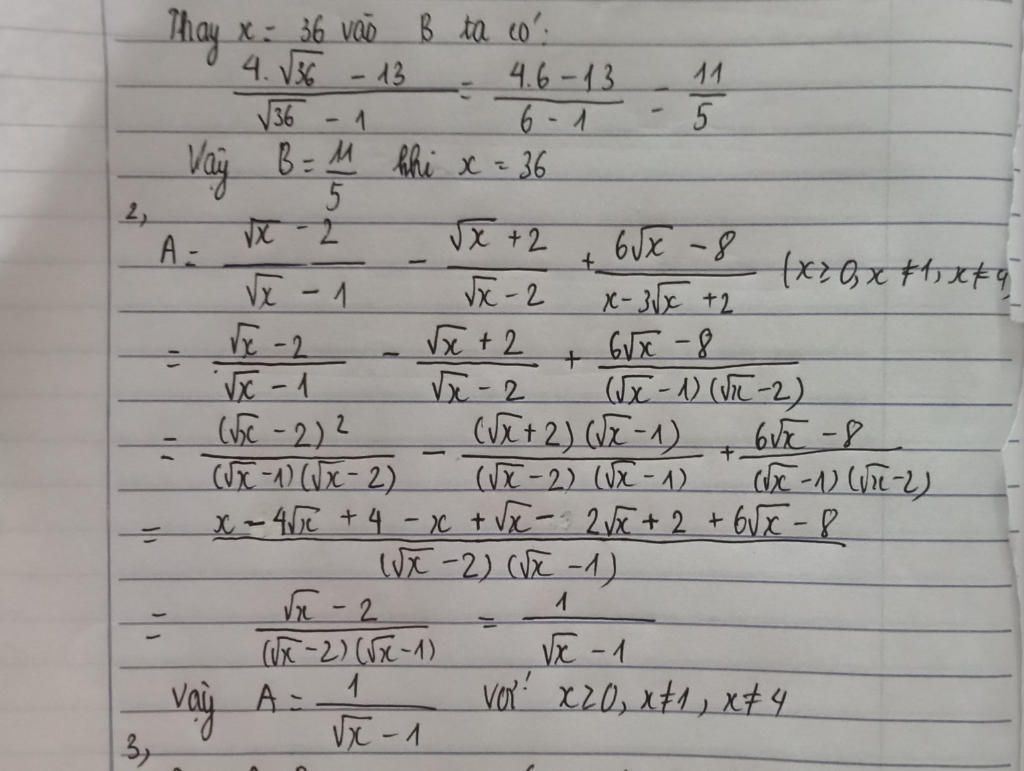 Thay x = 36 vào B ta có:
(4.√36 - 13)/(√36 - 1) = (4.6 - 13)/(6 - 1) = 11/5
Vậy B = 11/5 khi x = 36
2,
A = (√x - 2)/(√x - 1) - (√x + 2)/(√x - 2) + (6√x - 8)/(x - 3√x + 2) (x ≥ 0, x ≠ 1, x ≠ 4)
= (√x - 2)/(√x - 1) - (√x + 2)/(√x - 2) + (6√x - 8)/((√x - 1)(√x - 2))
= (√x - 2)²/((√x - 1)(√x - 2)) - ((√x + 2)(√x - 1))/((√x - 2)(√x - 1)) + (6√x - 8)/((√x - 1)(√x - 2))
= (x - 4√x + 4 - x + √x - 2√x + 2 + 6√x - 8)/((√x - 2)(√x - 1))
= (√x - 2)/((√x - 2)(√x - 1)) = 1/(√x - 1)
Vậy A = 1/(√x - 1) với x ≥ 0, x ≠ 1, x ≠ 4
3,